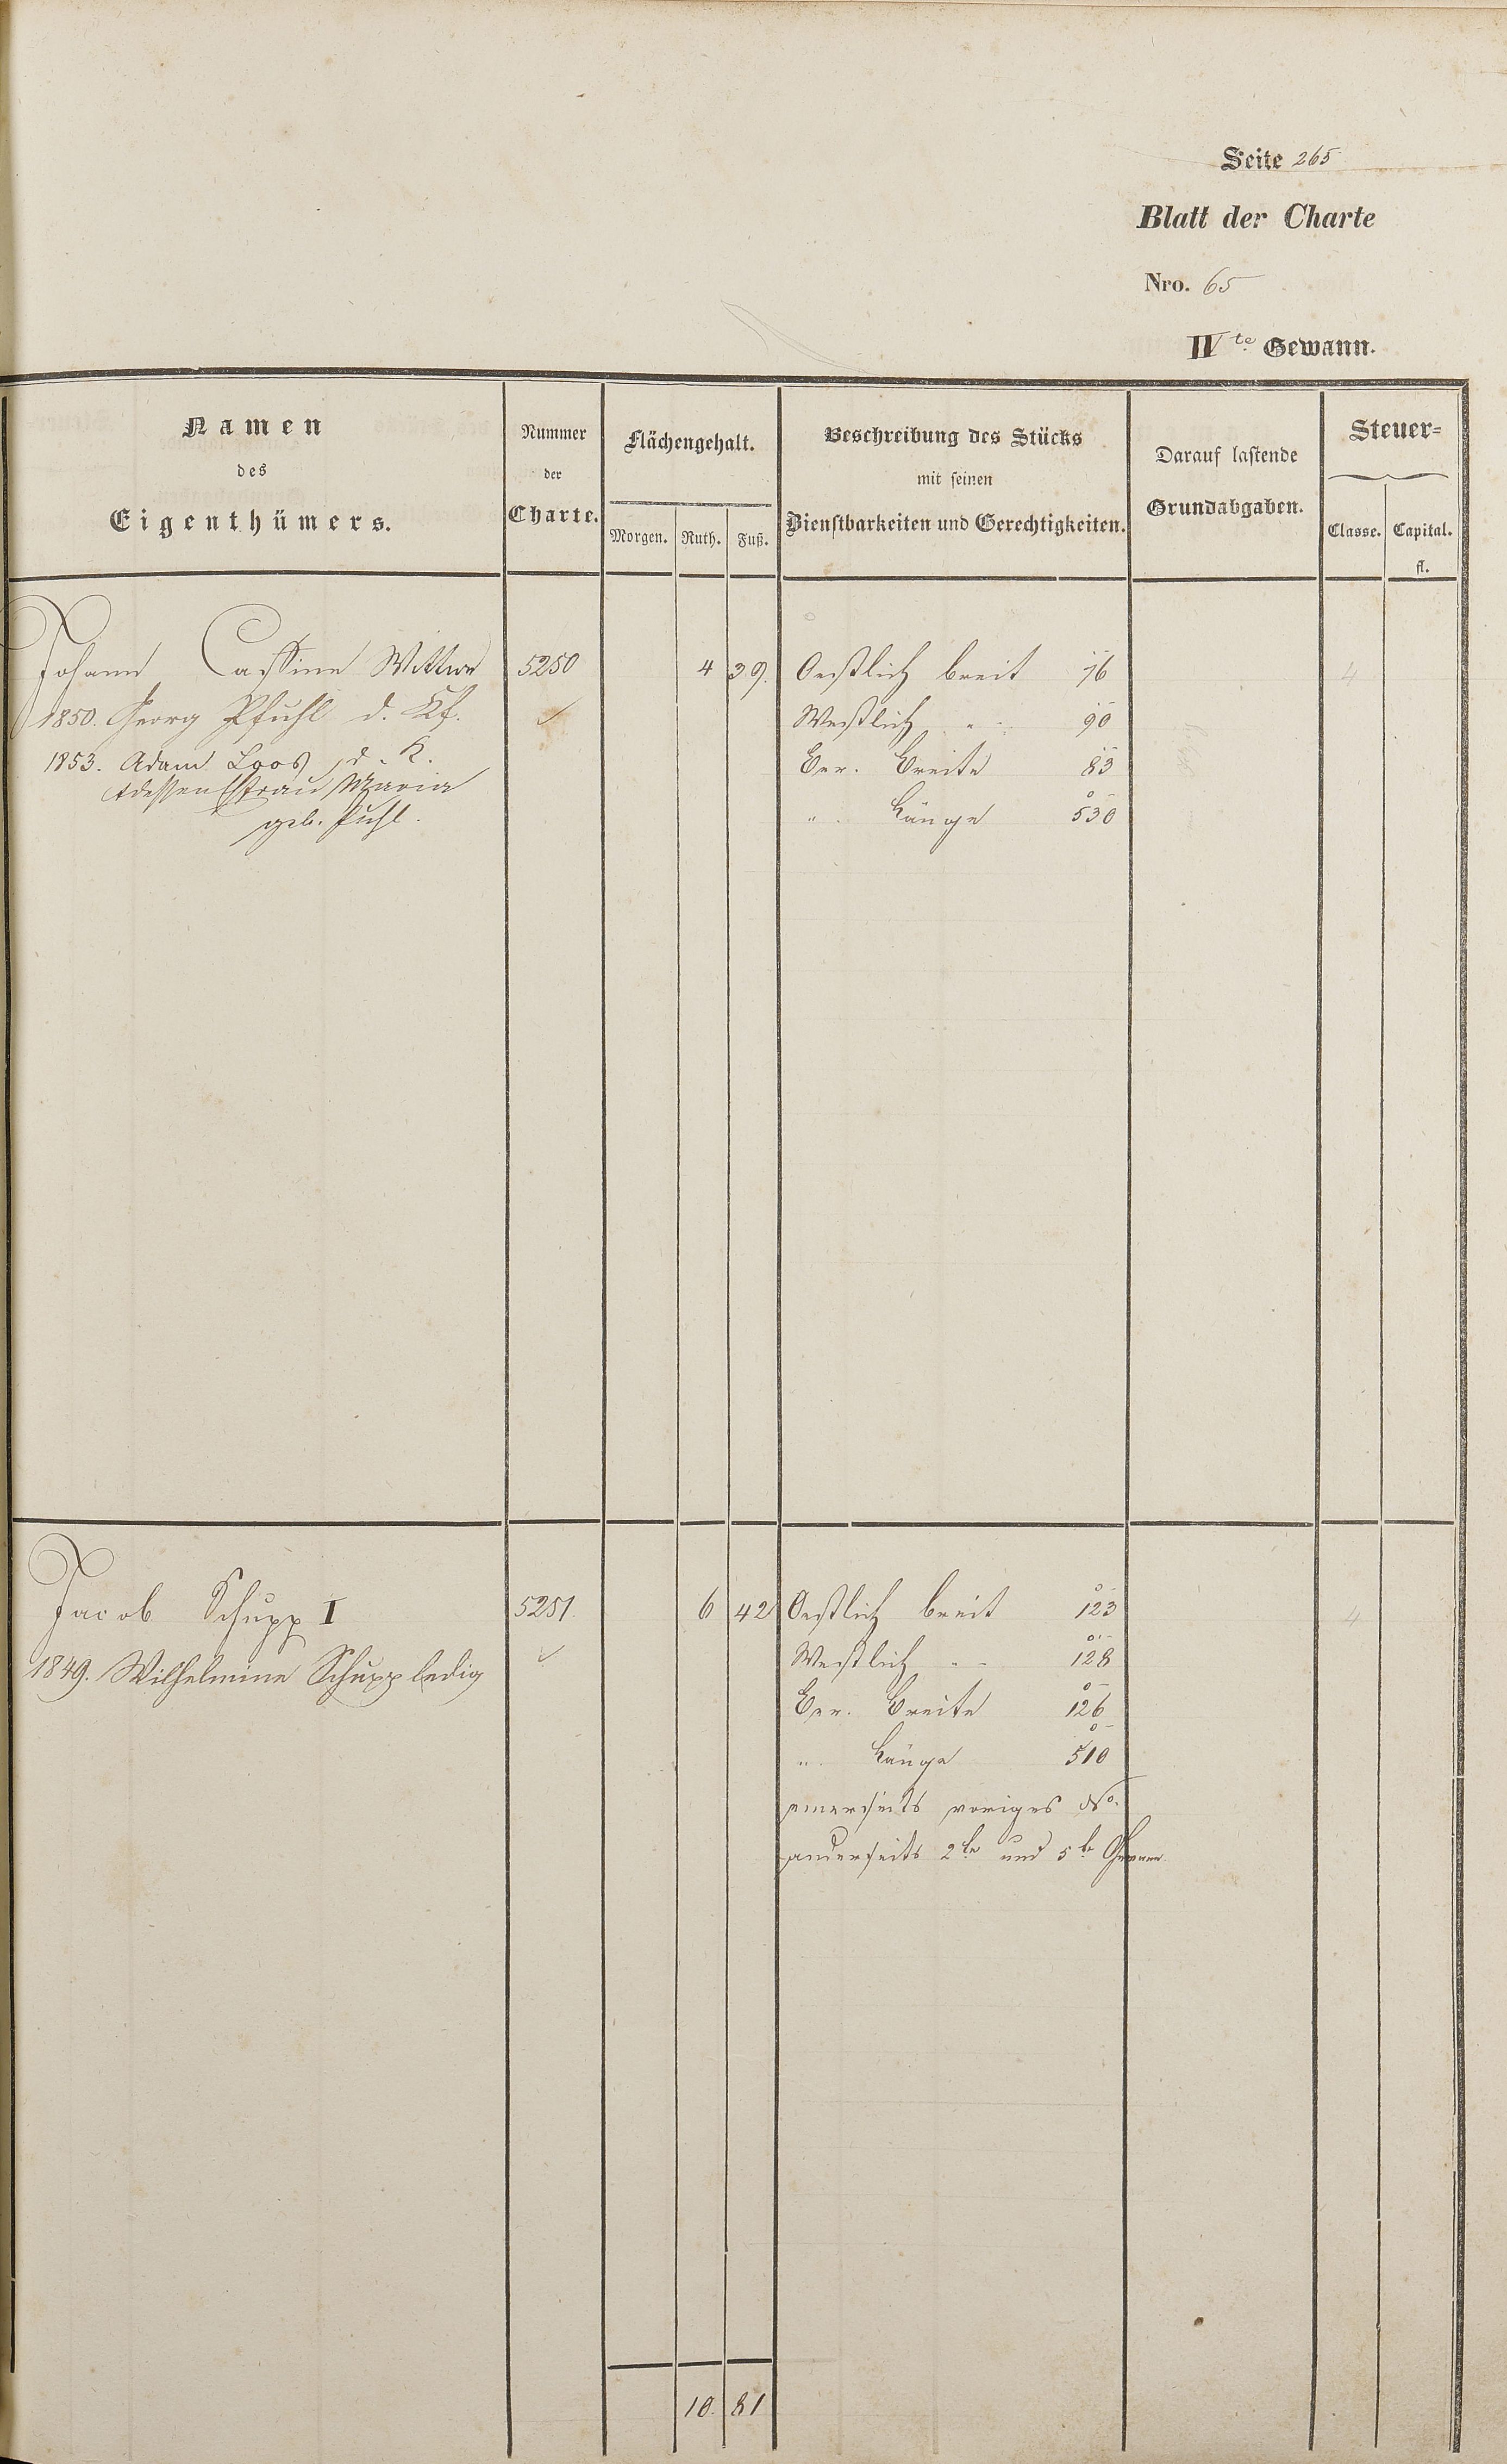 Seite 265
Blatt der Charte
Nro. 65
IVte Gewann.
Namen
des
Eigenthümers.
Nummer
der
Charte.
Flächengehalt.
Morgen. Ruth. Fuß.
Beschreibung des Stücks
mit seinen
Dienstbarkeiten und Gerechtigkeiten.
Darauf lastende
Grundabgaben.
Steuer=
Classe. Capital.
fl.
Johann Cassine Wittwe 5250 4 39. Oestlich breit 76 4
1850. Georg Pfuhl d. Kf. Westlich " 90
1853. Adam Loos d. K. Ver. Breite 83
dessen Ehefrau Maria
geb. Puhl. " Länge 530
Jacob Schupp I 5251. 6 42 Oestlich breit 123 4
1849. Wilhelmine Schupp ledig Westlich " 128
Ver. Breite 126
" Länge 510
einerseits voriges No.
anderseits 2te und 5te Gewann.
10. 81